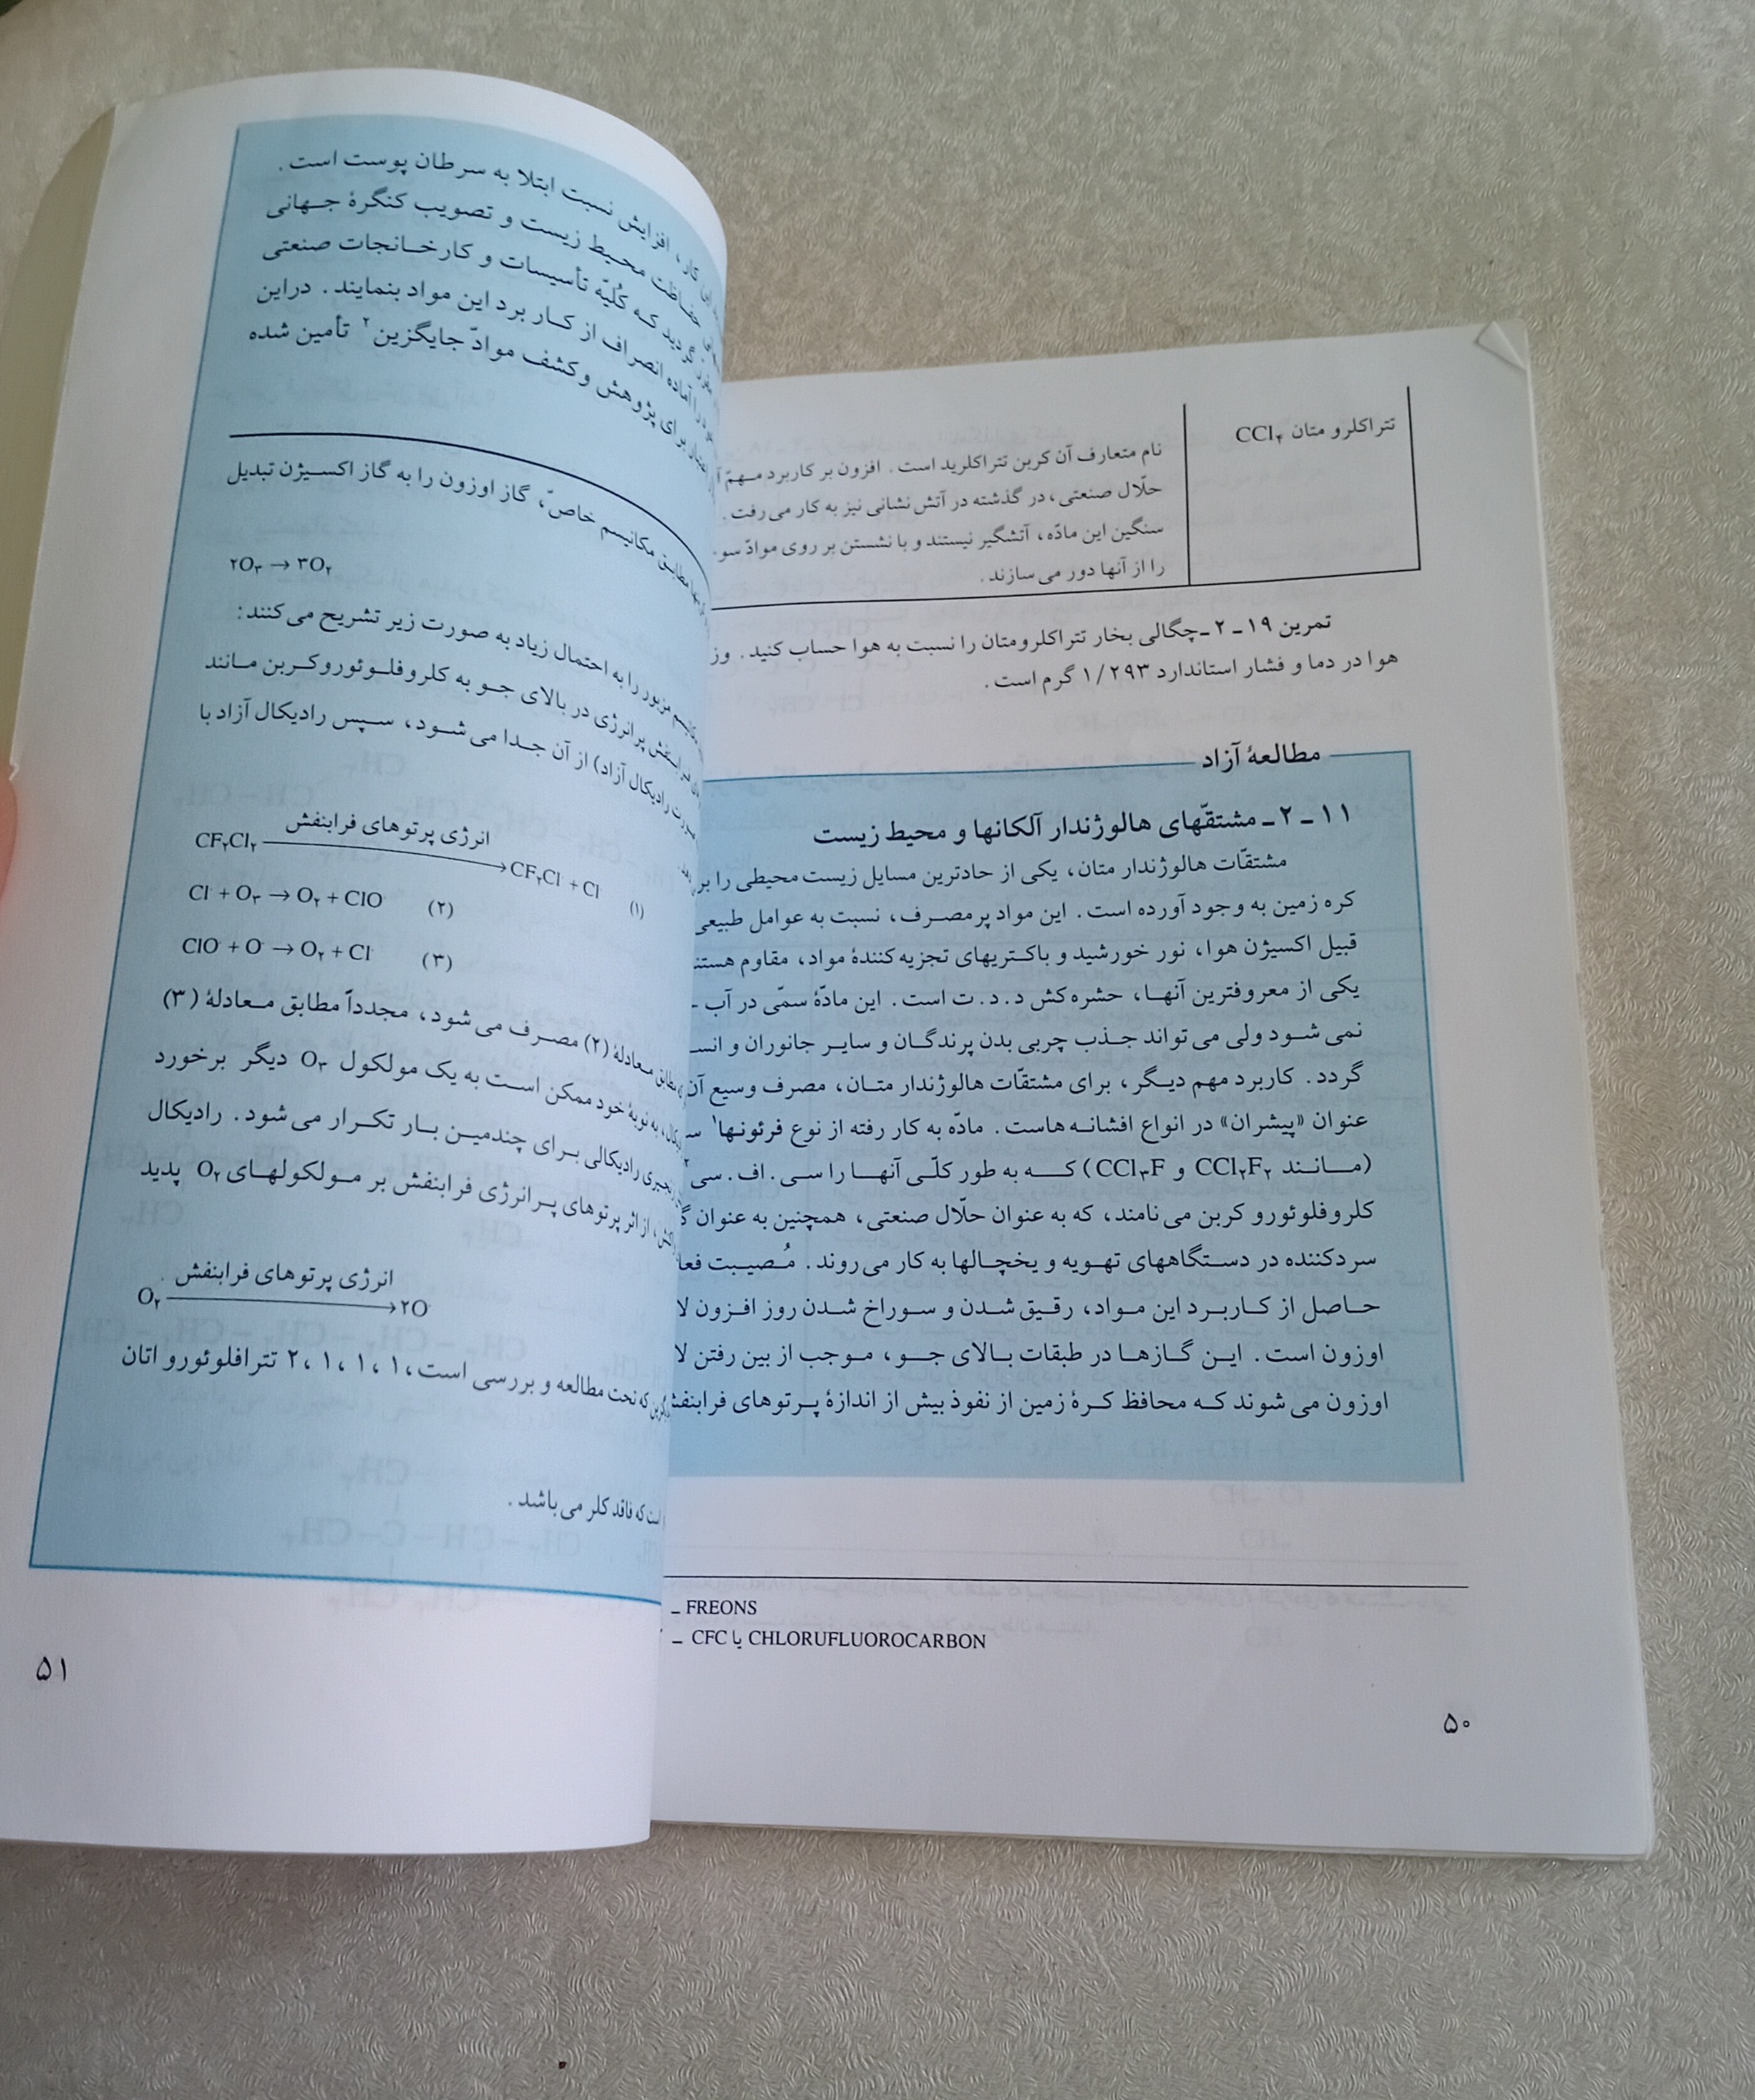 تتراکلرو متان CCl۴
نام متعارف آن کربن تتراکلرید است. افزون بر کاربرد مهمّ
حلّال صنعتی، در گذشته در آتش نشانی نیز به کار می رفت.
سنگین این مادّه، آتشگیر نیستند و با نشستن بر روی موادّ
را از آنها دور می سازند.
تمرین ۱۹ ـ ۲ ـ چگالی بخار تتراکلرومتان را نسبت به هوا حساب کنید.
هوا در دما و فشار استاندارد ۱/۲۹۳ گرم است.
مطالعهٔ آزاد
۱۱ ـ ۲ ـ مشتقّهای هالوژندار آلکانها و محیط زیست
مشتقّات هالوژندار متان، یکی از حادترین مسایل زیست محیطی را
کره زمین به وجود آورده است. این مواد پرمصرف، نسبت به عوامل طبیعی
قبیل اکسیژن هوا، نور خورشید و باکتریهای تجزیه کنندهٔ مواد، مقاوم
یکی از معروفترین آنها، حشره کش د.د.ت است. این مادّهٔ سمّی در آب
نمی شود ولی می تواند جذب چربی بدن پرندگان و سایر جانوران و
گردد. کاربرد مهم دیگر، برای مشتقّات هالوژندار متان، مصرف وسیع
عنوان «پیشران» در انواع افشانه هاست. مادّه به کار رفته از نوع فرئونها۱
(مانند CCl۲F۲ و CCl۳F) که به طور کلّی آنها را سی. اف. سی۲
کلروفلوئورو کربن می نامند، که به عنوان حلّال صنعتی، همچنین به عنوان
سردکننده در دستگاههای تهویه و یخچالها به کار می روند. مُصیبت
حاصل از کاربرد این مواد، رقیق شدن و سوراخ شدن روز افزون
اوزون است. این گازها در طبقات بالای جو، موجب از بین رفتن
اوزون می شوند که محافظ کرهٔ زمین از نفوذ بیش از اندازهٔ پرتوهای
ـ FREONS
ـ CFC یا CHLORUFLUOROCARBON
۵۰
کار، افزایش نسبت ابتلا به سرطان پوست است.
حفاظت محیط زیست و تصویب کنگرهٔ جهانی
گردید که کُلیّه تأسیسات و کارخانجات صنعتی
آماده انصراف از کاربرد این مواد بنمایند. دراین
برای پژوهش و کشف موادّ جایگزین۲ تأمین شده
مطابق مکانیسم خاصّ، گاز اوزون را به گاز اکسیژن تبدیل
۲O۳ → ۳O۲
مزبور را به احتمال زیاد به صورت زیر تشریح می کنند:
پرانرژی در بالای جو به کلروفلوئوروکربن مانند
رادیکال آزاد) از آن جدا می شود، سپس رادیکال آزاد با
CF۲Cl۲ انرژی پرتوهای فرابنفش → CF۲Cl· + Cl· (۱)
Cl· + O۳ → O۲ + ClO· (۲)
ClO· + O· → O۲ + Cl· (۳)
معادلهٔ (۲) مصرف می شود، مجدداً مطابق معادلهٔ (۳)
به نوبهٔ خود ممکن است به یک مولکول O۳ دیگر برخورد
رادیکالی برای چندمین بار تکرار می شود. رادیکال
از اثر پرتوهای پرانرژی فرابنفش بر مولکولهای O۲ پدید
O۲ انرژی پرتوهای فرابنفش → ۲O·
که تحت مطالعه و بررسی است، ۱، ۱، ۱، ۲ تترافلوئورو اتان
است که فاقد کلر می باشد.
۵۱